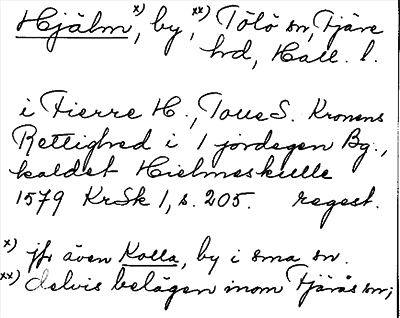 Hjälm x), by, xx) Tölö sn, Fjäre
hd, Hall. l.
i Fierre H., Toue S. Kronens
Rettighed i 1 jordegen Bg.,
kaldet Hielmeskulle
1579 KrSk 1, s. 205. regest.
x) jfr även Kolla, by i sma sn.
xx) delvis belägen inom Fjärås sn;